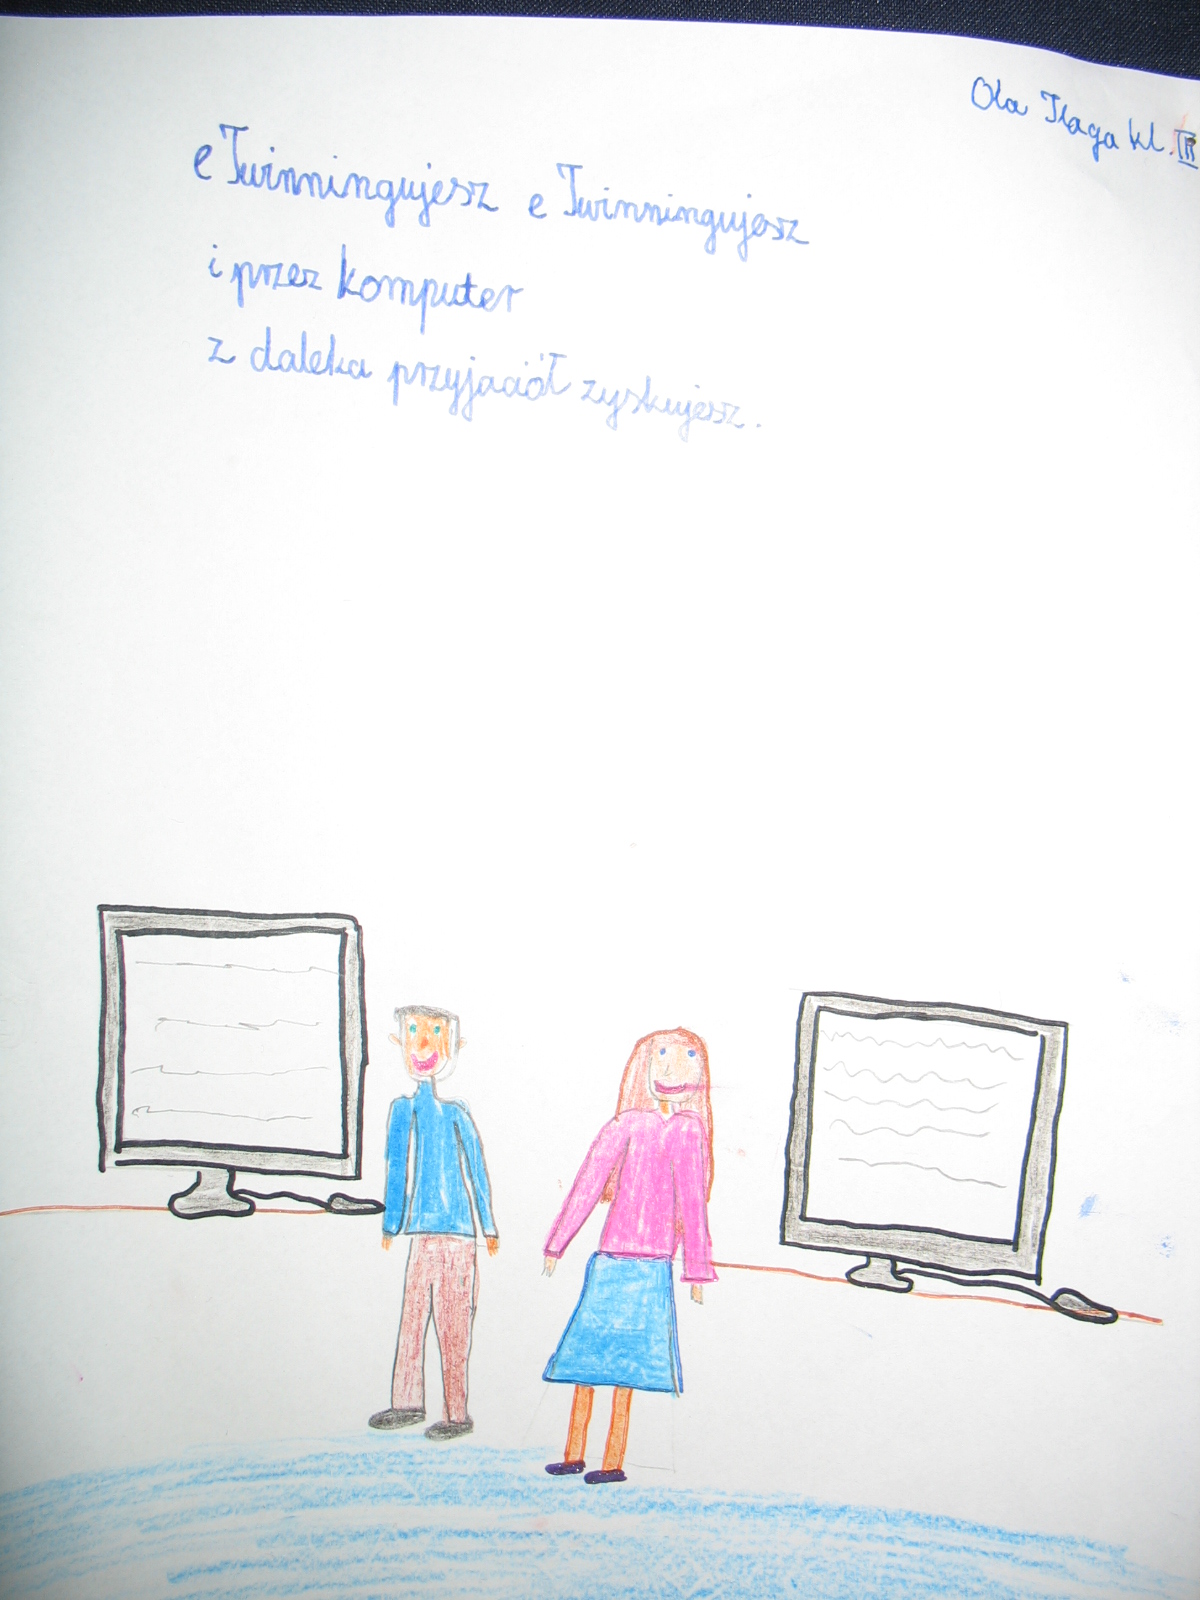 Ola Tlaga kl. III
e Twinningujesz e Twinningujesz
i przez komputer
z daleka przyjaciół zyskujesz.